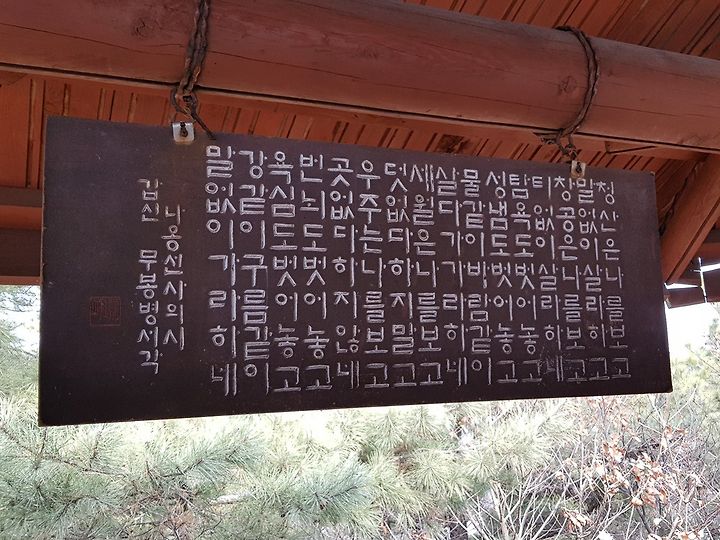 청산은나를보고
말없이살라하고
창공은나를보고
티없이살라하네
탐욕도벗어놓고
성냄도벗어놓고
물같이바람같이
살다가가라하네
세월은나를보고
덧없다하지말고
우주는나를보고
곳없다하지않네
번뇌도벗어놓고
욕심도벗어놓고
강같이구름같이
말없이가라하네
나옹선사의시
갑신 무봉병서각